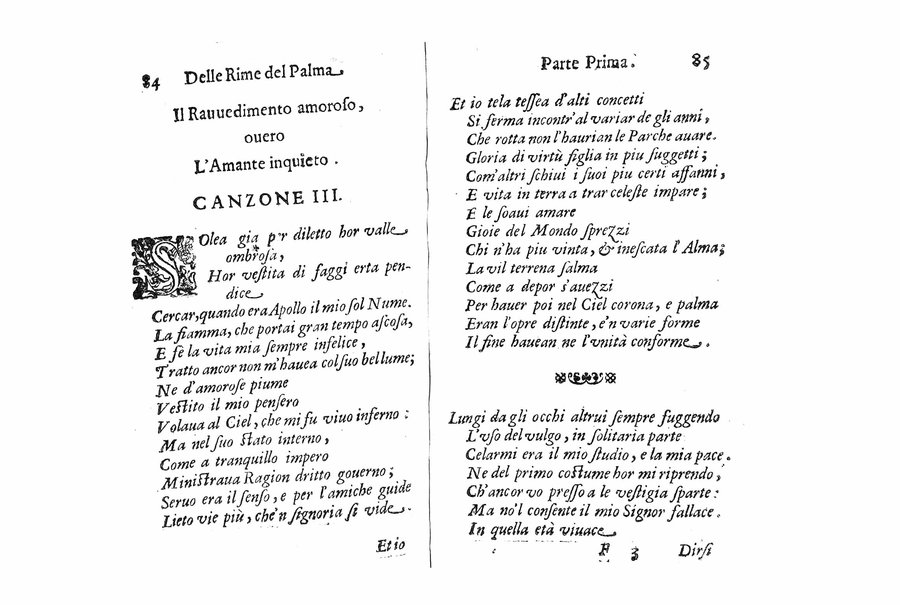 84 Delle Rime del Palma
Il Rauuedimento amoroſo,
ouero
L'Amante inquieto.
CANZONE III.
SOlea gia p̱r diletto hor valle
ombroſa,
Hor veſtita di faggi erta pen-
dice
Cercar, quando era Apollo il mio ſol Nume.
La fiamma, che portai gran tempo aſcoſa,
E fè la vita mia ſempre infelice,
Tratto ancor non m'hauea col ſuo bel lume;
Ne d'amoroſe piume
Veſtito il mio penſero
Volaua al Ciel, che mi fu viuo inferno:
Ma nel ſuo ſtato interno,
Come a tranquillo impero
Miniſtraua Ragion dritto gouerno;
Seruo era il ſenſo, e per l'amiche guide
Lieto vie più, che'n ſignoria ſi vide.
Et io
Parte Prima. 85
Et io tela teſſea d'alti concetti
Si ferma incontr'al variar de gli anni,
Che rotta non l'haurian le Parche auare.
Gloria di virtù figlia in piu ſuggetti;
Com'altri ſchiui i ſuoi piu certi affanni,
E vita in terra a trar celeſte impare;
E le ſoaui amare
Gioie del Mondo ſprezzi
Chi n'ha piu vinta, & ineſcata l'Alma;
La vil terrena ſalma
Come a depor s'auezzi
Per hauer poi nel Ciel corona, e palma
Eran l'opre diſtinte, e'n varie forme
Il fine hauean ne l'vnità conforme.
Lungi da gli occhi altrui ſempre fuggendo
L'vſo del vulgo, in ſolitaria parte
Celarmi era il mio ſtudio, e la mia pace.
Ne del primo coſtume hor mi riprendo,
Ch'ancor vo preſſo a le veſtigia ſparte:
Ma no'l conſente il mio Signor fallace.
In quella età viuace
F 3 Dirſi